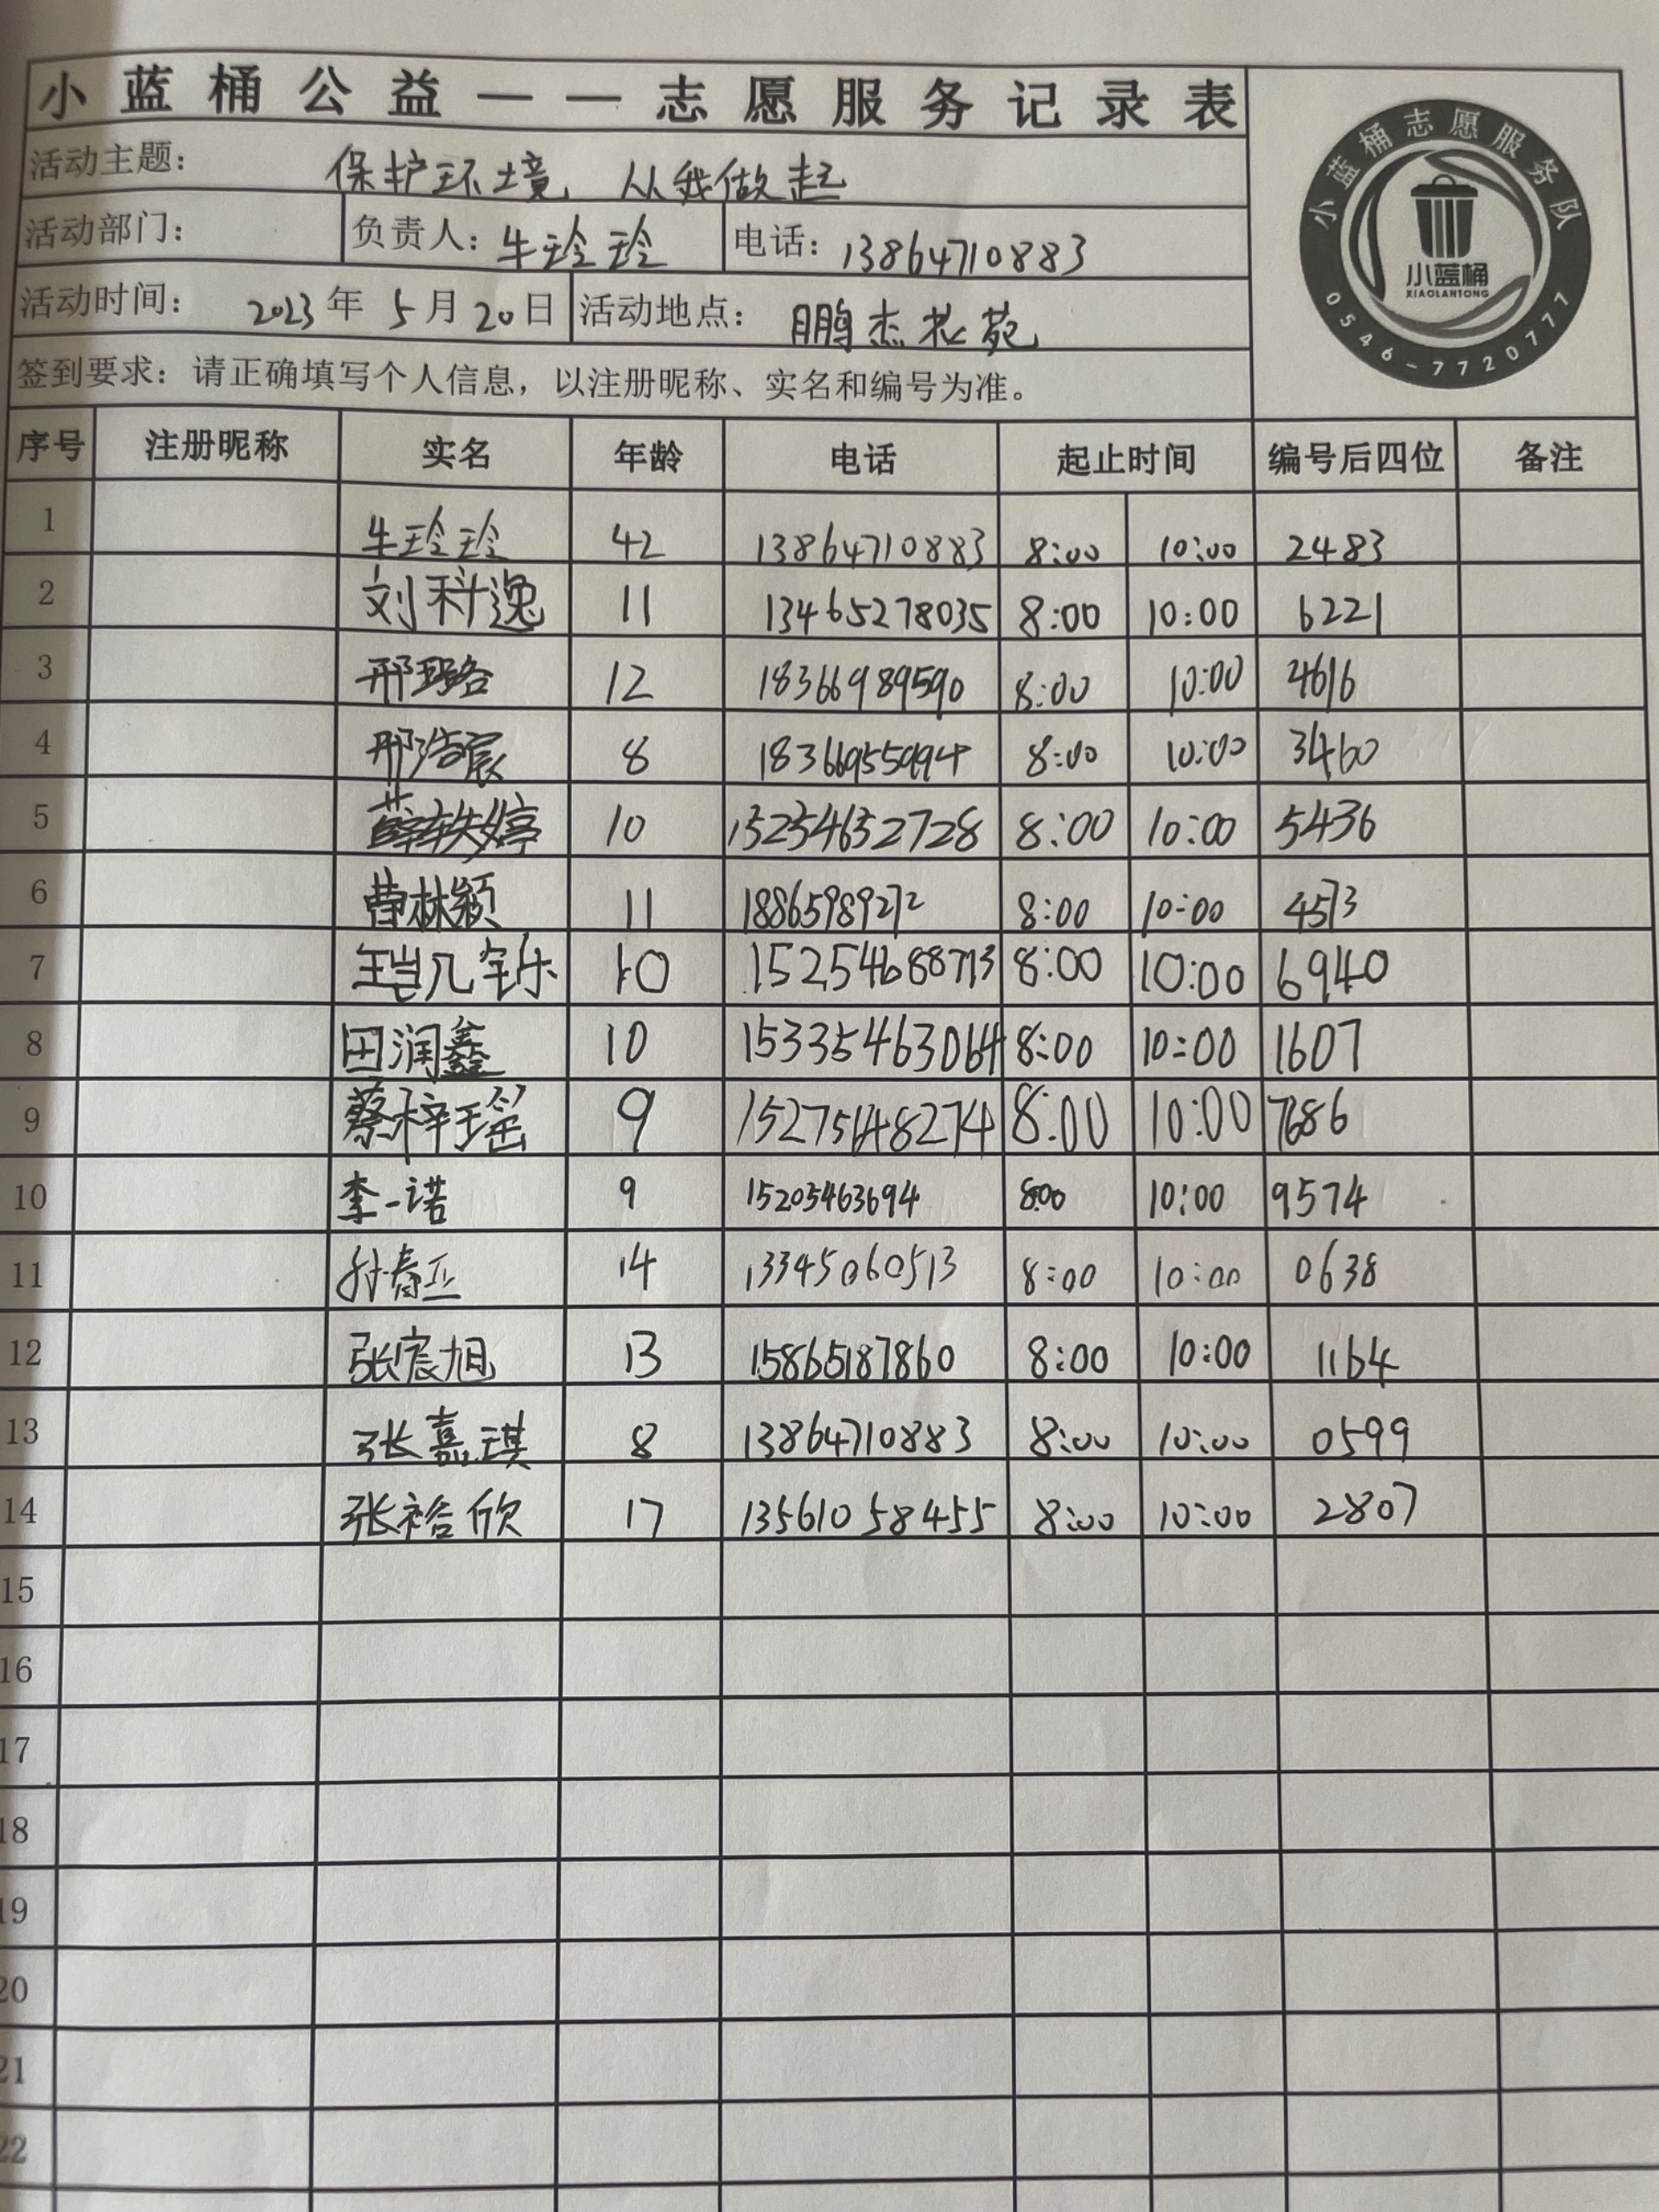 小蓝桶公益——志愿服务记录表
小蓝桶志愿服务队
小蓝桶
XIAOLANTONG
0546-7720777
活动主题： 保护环境，从我做起
活动部门： 负责人：牛玲玲 电话：13864710883
活动时间： 2023年5月20日 活动地点： 鹏杰花苑
签到要求：请正确填写个人信息，以注册昵称、实名和编号为准。
序号 注册昵称 实名 年龄 电话 起止时间 编号后四位 备注
1 牛玲玲 42 13864710883 8:00 10:00 2483
2 刘科逸 11 13465278035 8:00 10:00 6221
3 邢璐 12 18366989590 8:00 10:00 4616
4 邢浩宸 8 18366955994 8:00 10:00 3460
5 薛轶婷 10 15254632728 8:00 10:00 5436
6 曹林颖 11 18865989272 8:00 10:00 4573
7 王岂几 10 15254688713 8:00 10:00 6940
8 田润鑫 10 15335463064 8:00 10:00 1607
9 蔡梓瑶 9 15275648274 8:00 10:00 7686
10 李一诺 9 15205463694 8:00 10:00 9574
11 孙春正 14 13345060513 8:00 10:00 0638
12 张宸旭 13 15865187860 8:00 10:00 1164
13 张嘉琪 8 13864710883 8:00 10:00 0599
14 张裕欣 17 13561058455 8:00 10:00 2807
15
16
17
18
19
20
21
22